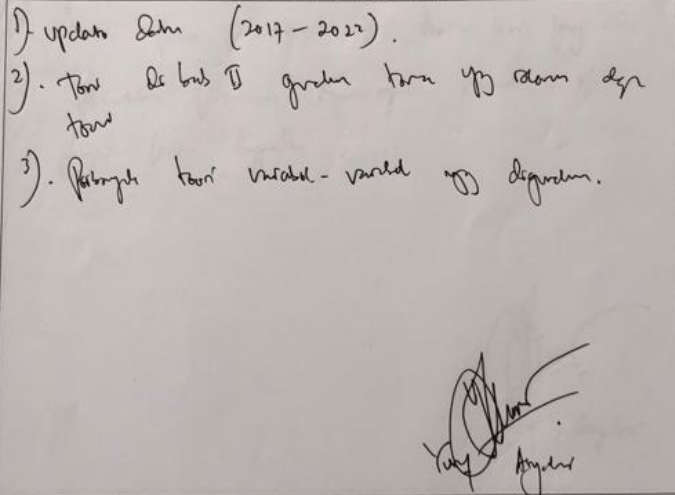 1). update data (2017 - 2022).
2). Teori di bab II gunakan teori yg relevan dgn
teori
3). Perbanyak teori variabel - variabel yg digunakan.